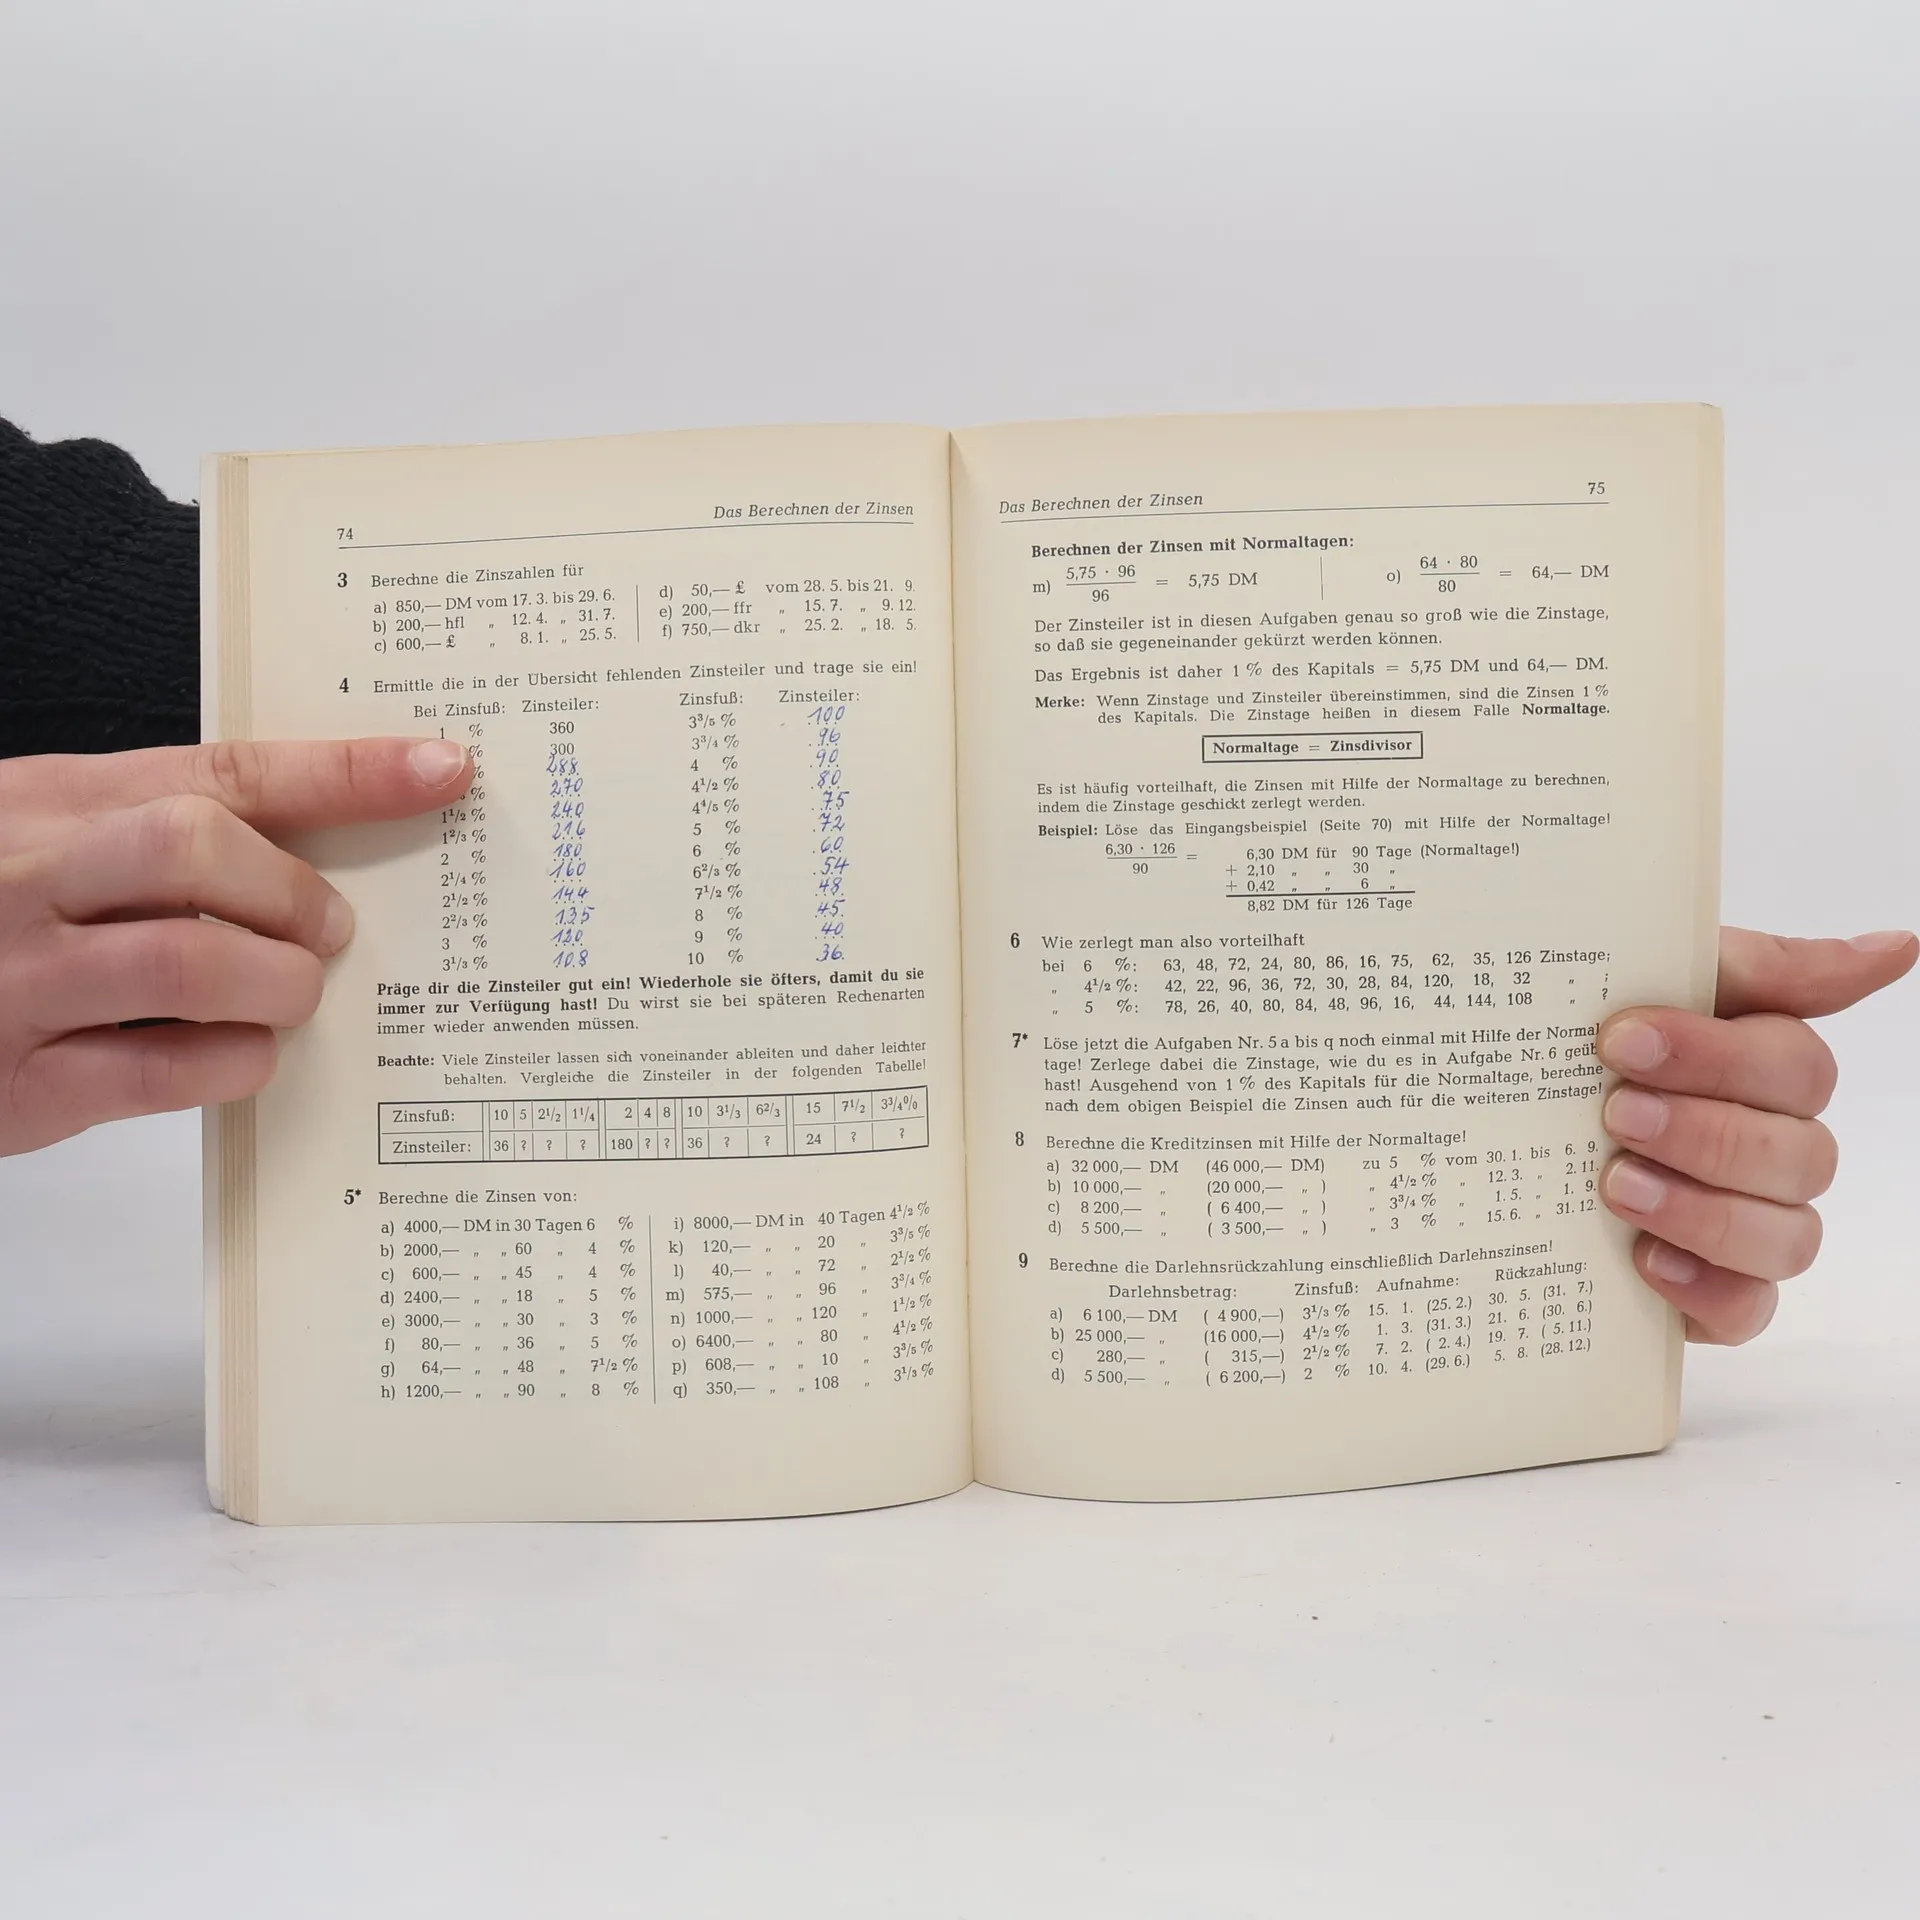 74
Das Berechnen der Zinsen
3 Berechne die Zinszahlen für
a) 850,— DM vom 17. 3. bis 29. 6.
b) 200,— hfl „ 12. 4. „ 31. 7.
c) 600,— £ „ 8. 1. „ 25. 5.
d) 50,— £ vom 28. 5. bis 21. 9.
e) 200,— ffr „ 15. 7. „ 9. 12.
f) 750,— dkr „ 25. 2. „ 18. 5.
4 Ermittle die in der Übersicht fehlenden Zinsteiler und trage sie ein!
Bei Zinsfuß: Zinsteiler: Zinsfuß: Zinsteiler:
1 % 360 3³/₅ % 100
% 300 3³/₄ % 96
% 288 4 % 90
% 270 4¹/₂ % 80
1¹/₂ % 240 4⁴/₅ % 75
1²/₃ % 216 5 % 72
2 % 180 6 % 60
2¹/₄ % 160 6²/₃ % 54
2¹/₂ % 144 7¹/₂ % 48
2²/₃ % 135 8 % 45
3 % 120 9 % 40
3¹/₃ % 108 10 % 36
Präge dir die Zinsteiler gut ein! Wiederhole sie öfters, damit du sie
immer zur Verfügung hast! Du wirst sie bei späteren Rechenarten
immer wieder anwenden müssen.
Beachte: Viele Zinsteiler lassen sich voneinander ableiten und daher leichter
behalten. Vergleiche die Zinsteiler in der folgenden Tabelle!
Zinsfuß: 10 5 2¹/₂ 1¹/₄ 2 4 8 10 3¹/₃ 6²/₃ 15 7¹/₂ 3³/₄%
Zinsteiler: 36 ? ? ? 180 ? ? 36 ? ? 24 ? ?
5* Berechne die Zinsen von:
a) 4000,— DM in 30 Tagen 6 %
b) 2000,— „ „ 60 „ 4 %
c) 600,— „ „ 45 „ 4 %
d) 2400,— „ „ 18 „ 5 %
e) 3000,— „ „ 30 „ 3 %
f) 80,— „ „ 36 „ 5 %
g) 64,— „ „ 48 „ 7¹/₂ %
h) 1200,— „ „ 90 „ 8 %
i) 8000,— DM in 40 Tagen 4¹/₂ %
k) 120,— „ „ 20 „ 3³/₅ %
l) 40,— „ „ 72 „ 2¹/₂ %
m) 575,— „ „ 96 „ 3³/₄ %
n) 1000,— „ „ 120 „ 1¹/₂ %
o) 6400,— „ „ 80 „ 4¹/₂ %
p) 608,— „ „ 10 „ 3³/₅ %
q) 350,— „ „ 108 „ 3¹/₃ %
Das Berechnen der Zinsen
75
Berechnen der Zinsen mit Normaltagen:
m) 5,75 · 96 / 96 = 5,75 DM
o) 64 · 80 / 80 = 64,— DM
Der Zinsteiler ist in diesen Aufgaben genau so groß wie die Zinstage,
so daß sie gegeneinander gekürzt werden können.
Das Ergebnis ist daher 1 % des Kapitals = 5,75 DM und 64,— DM.
Merke: Wenn Zinstage und Zinsteiler übereinstimmen, sind die Zinsen 1 %
des Kapitals. Die Zinstage heißen in diesem Falle Normaltage.
Normaltage = Zinsdivisor
Es ist häufig vorteilhaft, die Zinsen mit Hilfe der Normaltage zu berechnen,
indem die Zinstage geschickt zerlegt werden.
Beispiel: Löse das Eingangsbeispiel (Seite 70) mit Hilfe der Normaltage!
6,30 · 126 / 90 = 6,30 DM für 90 Tage (Normaltage!)
+ 2,10 „ „ 30 „
+ 0,42 „ „ 6 „
8,82 DM für 126 Tage
6 Wie zerlegt man also vorteilhaft
bei 6 %: 63, 48, 72, 24, 80, 86, 16, 75, 62, 35, 126 Zinstage;
„ 4¹/₂ %: 42, 22, 96, 36, 72, 30, 28, 84, 120, 18, 32 „ ;
„ 5 %: 78, 26, 40, 80, 84, 48, 96, 16, 44, 144, 108 „ ?
7* Löse jetzt die Aufgaben Nr. 5 a bis q noch einmal mit Hilfe der Normal
tage! Zerlege dabei die Zinstage, wie du es in Aufgabe Nr. 6 geüb
hast! Ausgehend von 1 % des Kapitals für die Normaltage, berechne
nach dem obigen Beispiel die Zinsen auch für die weiteren Zinstage!
8 Berechne die Kreditzinsen mit Hilfe der Normaltage!
a) 32 000,— DM (46 000,— DM) zu 5 % vom 30. 1. bis 6. 9.
b) 10 000,— „ (20 000,— „ ) „ 4¹/₂ % „ 12. 3. „ 2. 11.
c) 8 200,— „ ( 6 400,— „ ) „ 3³/₄ % „ 1. 5. „ 1. 9.
d) 5 500,— „ ( 3 500,— „ ) „ 3 % „ 15. 6. „ 31. 12.
9 Berechne die Darlehnsrückzahlung einschließlich Darlehnszinsen!
Darlehnsbetrag: Zinsfuß: Aufnahme: Rückzahlung:
a) 6 100,— DM ( 4 900,—) 3¹/₃ % 15. 1. (25. 2.) 30. 5. (31. 7.)
b) 25 000,— „ (16 000,—) 4¹/₂ % 1. 3. (31. 3.) 21. 6. (30. 6.)
c) 280,— „ ( 315,—) 2¹/₂ % 7. 2. ( 2. 4.) 19. 7. ( 5. 11.)
d) 5 500,— „ ( 6 200,—) 2 % 10. 4. (29. 6.) 5. 8. (28. 12.)